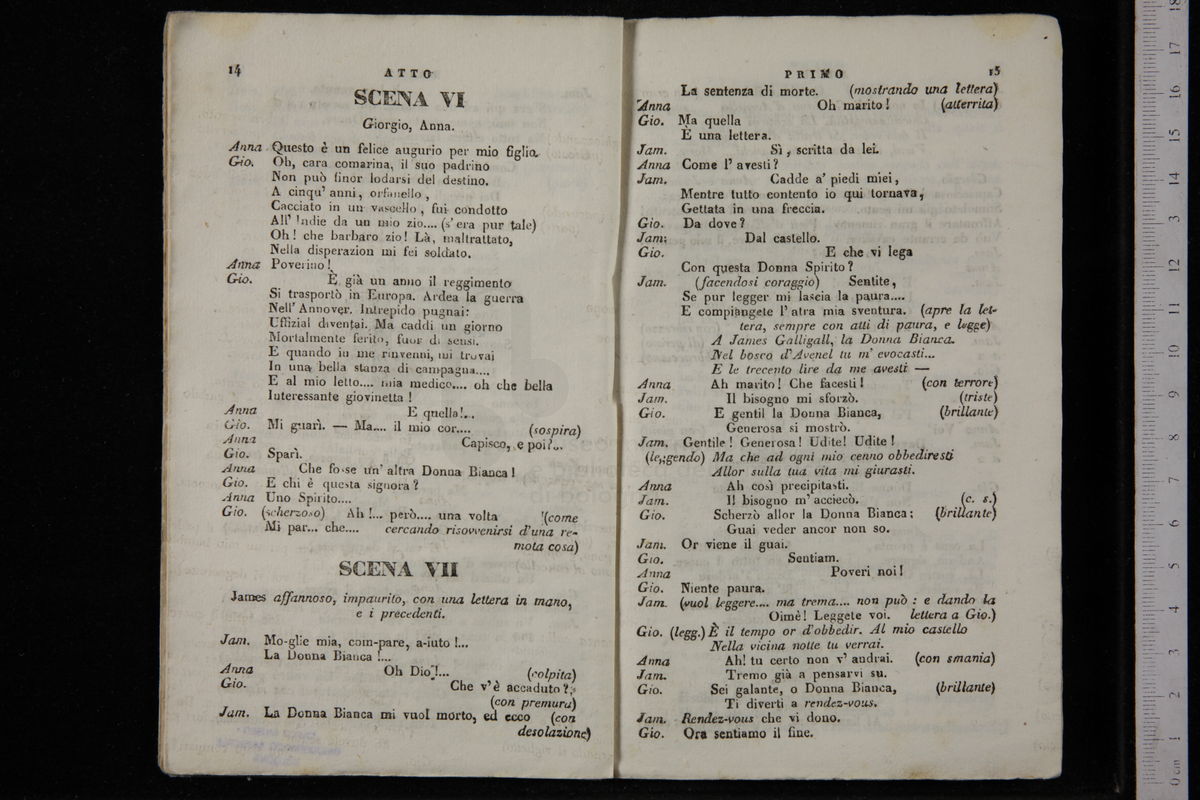 14
ATTO
SCENA VI
Giorgio, Anna.
Anna Questo è un felice augurio per mio figlio.
Gio. Oh, cara comarina, il suo padrino
Non può finor lodarsi del destino.
A cinqu' anni, orfanello,
Cacciato in un vascello, fui condotto
All' Indie da un mio zio.... (s'era pur tale)
Oh! che barbaro zio! Là, maltrattato,
Nella disperazion mi fei soldato.
Anna Poverino!
Gio. È già un anno il reggimento
Si trasportò in Europa. Ardea la guerra
Nell' Annover. Intrepido pugnai:
Uffizial diventai. Ma caddi un giorno
Mortalmente ferito, fuor di sensi.
E quando in me rinvenni, mi trovai
In una bella stanza di campagna....
E al mio letto.... mia medico.... oh che bella
Interessante giovinetta!
Anna E quella!...
Gio. Mi guarì. — Ma.... il mio cor.... (sospira)
Anna Capisco, e poi?...
Gio. Sparì.
Anna Che fosse un' altra Donna Bianca!
Gio. E chi è questa signora?
Anna Uno Spirito....
Gio. (scherzoso) Ah!... però.... una volta (come
Mi par... che.... cercando risovvenirsi d'una re-
mota cosa)
SCENA VII
James affannoso, impaurito, con una lettera in mano,
e i precedenti.
Jam. Mo-glie mia, com-pare, a-iuto!...
La Donna Bianca!...
Anna Oh Dio!... (colpita)
Gio. Che v'è accaduto?
(con premura)
Jam. La Donna Bianca mi vuol morto, ed ecco (con
desolazione)
PRIMO
15
La sentenza di morte. (mostrando una lettera)
Anna Oh marito! (atterrita)
Gio. Ma quella
È una lettera.
Jam. Sì, scritta da lei.
Anna Come l' avesti?
Jam. Cadde a' piedi miei,
Mentre tutto contento io qui tornava,
Gettata in una freccia.
Gio. Da dove?
Jam. Dal castello.
Gio. E che vi lega
Con questa Donna Spirito?
Jam. (facendosi coraggio) Sentite,
Se pur legger mi lascia la paura....
E compiangete l' atra mia sventura. (apre la let-
tera, sempre con atti di paura, e legge)
A James Galligall, la Donna Bianca.
Nel bosco d'Avenel tu m' evocasti...
E le trecento lire da me avesti —
Anna Ah marito! Che facesti! (con terrore)
Jam. Il bisogno mi sforzò. (triste)
Gio. E gentil la Donna Bianca, (brillante)
Generosa si mostrò.
Jam. Gentile! Generosa! Udite! Udite!
(leggendo) Ma che ad ogni mio cenno obbediresti
Allor sulla tua vita mi giurasti.
Anna Ah così precipitasti.
Jam. Il bisogno m' acciecò. (c. s.)
Gio. Scherzò allor la Donna Bianca: (brillante)
Guai veder ancor non so.
Jam. Or viene il guai.
Gio. Sentiam.
Anna Poveri noi!
Gio. Niente paura.
Jam. (vuol leggere.... ma trema.... non può: e dando la
Oimè! Leggete voi. lettera a Gio.)
Gio. (legg.) È il tempo or d'obbedir. Al mio castello
Nella vicina notte tu verrai.
Anna Ah! tu certo non v' andrai. (con smania)
Jam. Tremo già a pensarvi su.
Gio. Sei galante, o Donna Bianca, (brillante)
Ti diverti a rendez-vous.
Jam. Rendez-vous che vi dono.
Gio. Ora sentiamo il fine.